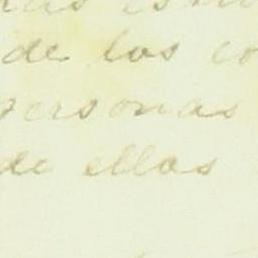 de los co
personas
de ellas